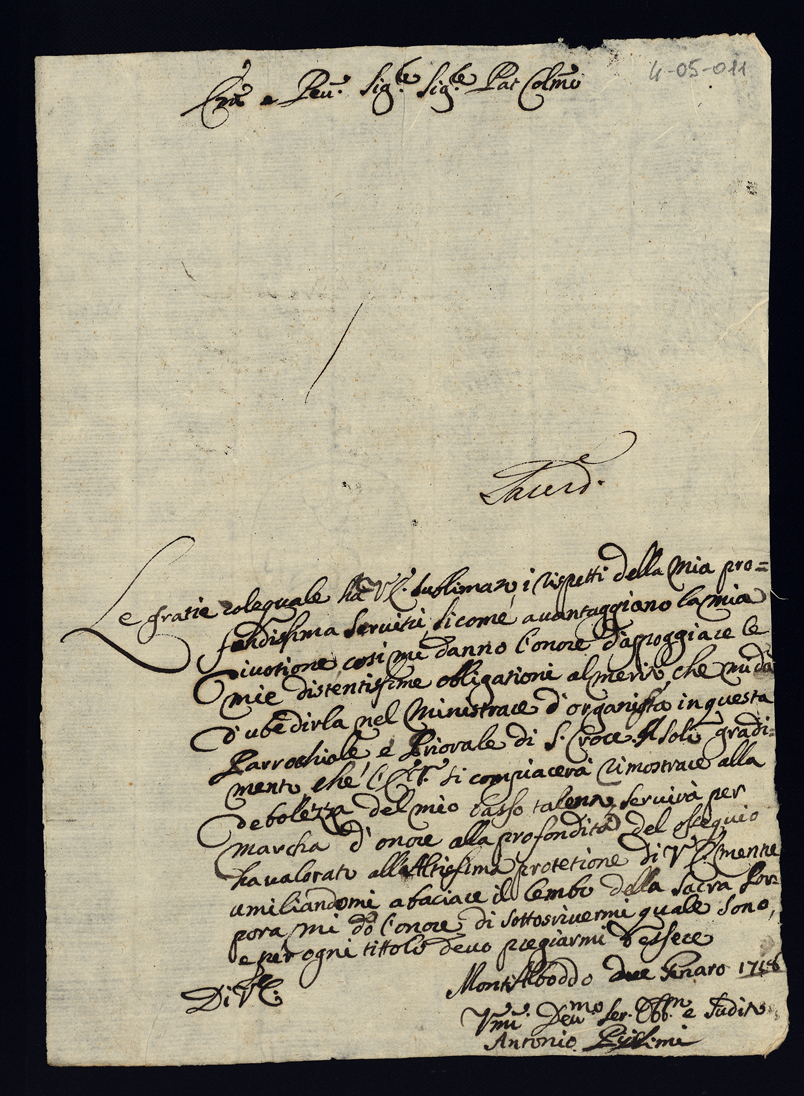 4-05-011
e Rev. Sig.le Sig.le Pat Colmo
Sacerd.
Le gratie colequale ha V. E. sublimato i rispetti della mia pro=
fondissima servitù, sicome avantaggiano la mia
divotione così mi danno l'onore d'appoggiare le
mie distentissime obligationi al merito, che mi dà
d'ubedirla nel Ministrare d'organista in questa
Parrochiale e Priorale di S. Croce. Il solo gradi=
mento, che si compiacerà rimostrare alla
debolezza del mio basso talento servirà per
marcha d'onore alla profondità del osequio
havalorato all'Altissima protetione di V. E. mentre
umiliandomi a baciare il lembo della Sacra Por=
pora, mi dò l'onore di sottoscrivermi quale sono,
e per ogni tittolo devo pregiarmi d'essere
Di V. E.
Mont'Alboddo due Genaro 1718
Devmo Ser. Obb.m e Sudito
Antonio